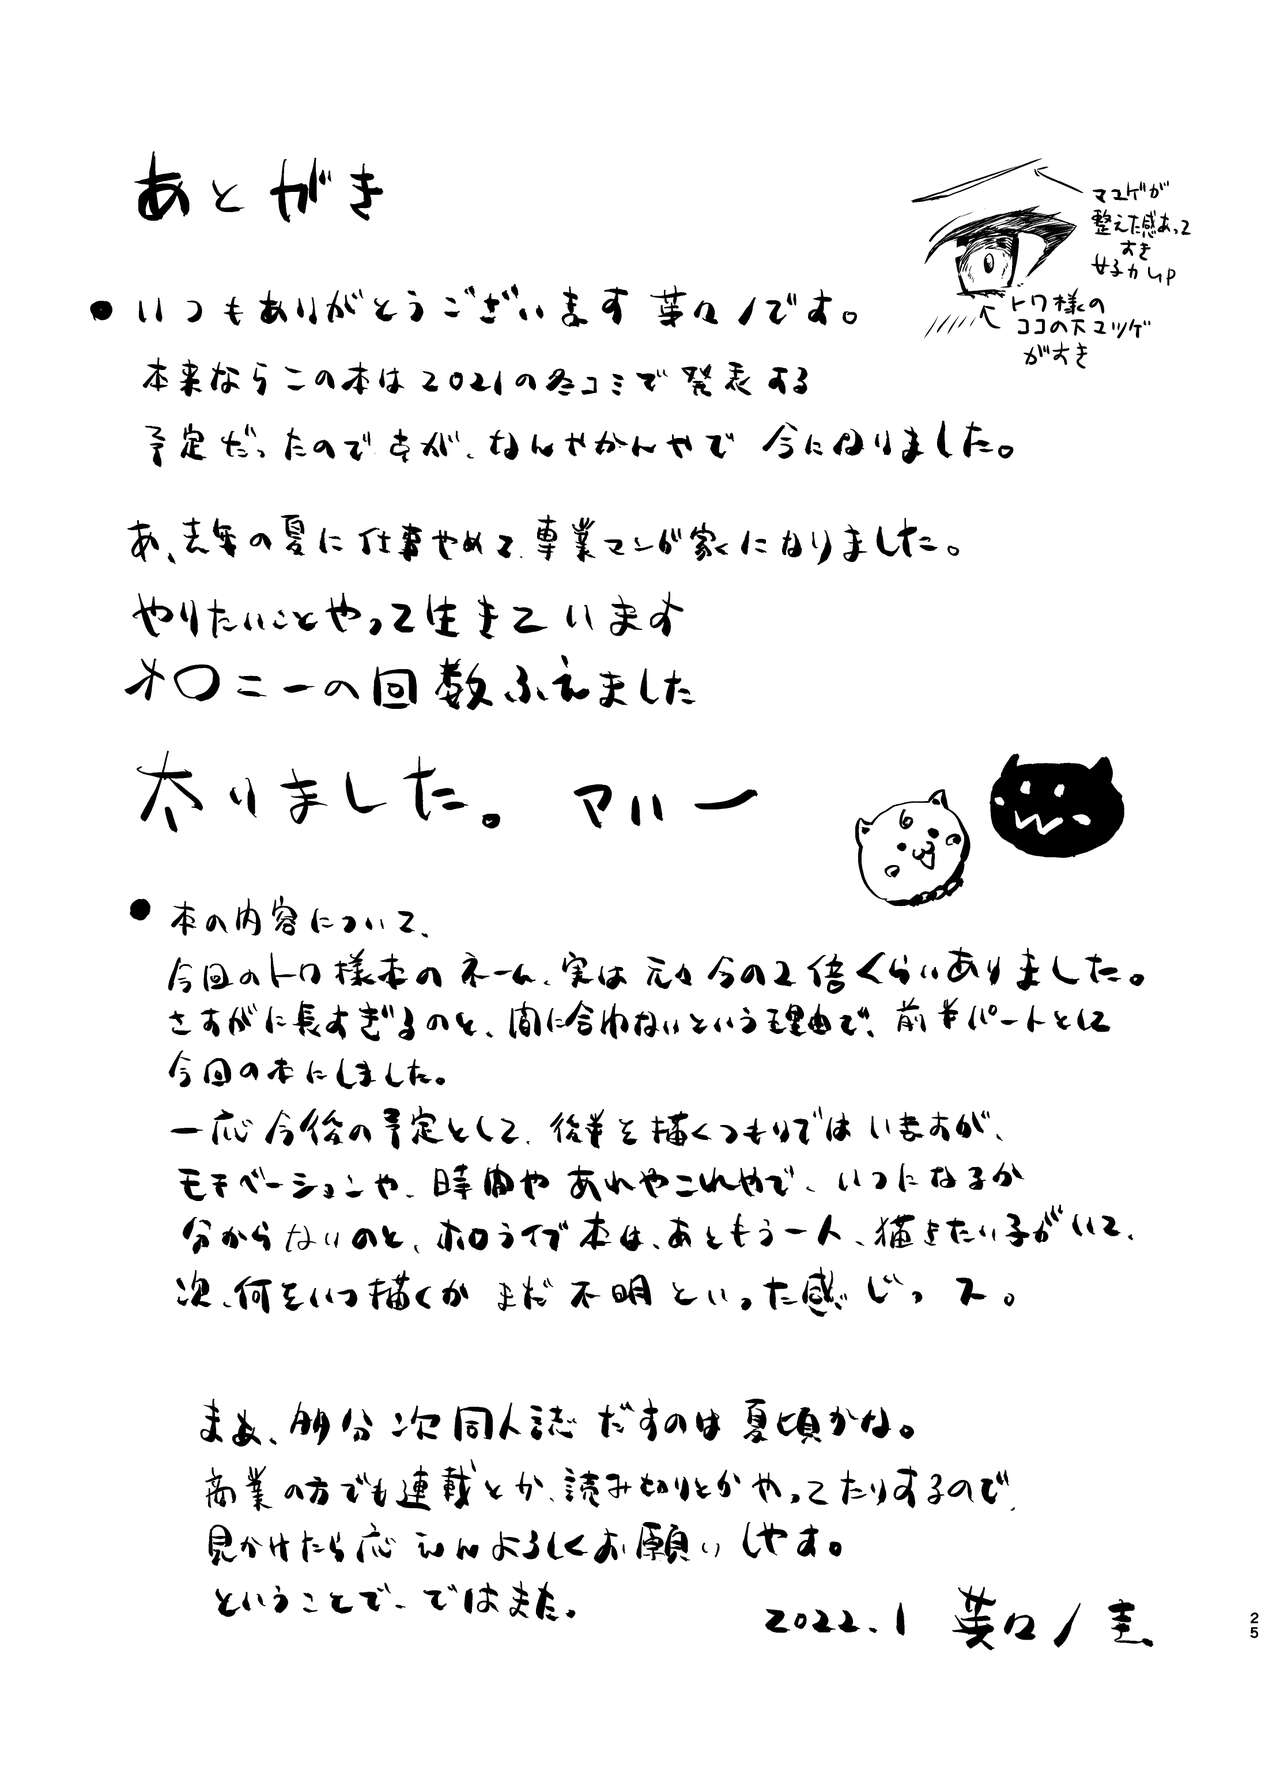 あとがき
マユゲが
整えた感あって
すき
女子力UP
トワ様の
ココの下マツゲ
がすき
●いつもありがとうございます 葉々ノです。
本来ならこの本は2021の冬コミで発表する
予定だったのですが、なんやかんやで 今になりました。
あ、去年の夏に仕事やめて、専業マンが家になりました。
やりたいことやって生きています
オ〇ニーの回数ふえました
太りました。 マハー
●本の内容について、
今回のトワ様本のネーム、実は元々今の2倍くらいありました。
さすがに長すぎるのと、間に合わないという理由で、前半パートとして
今回の本にしました。
一応今後の予定として、後半を描くつもりではいますが、
モチベーションや、時間や あれやこれやで、いつになるか
分からないのと、ホロライブ本は、あともう一人、描きたい子がいて、
次、何をいつ描くか まだ不明といった感じっス。
まぁ、多分次同人誌だすのは夏頃かな。
商業の方でも連載とか、読み切りとかやってたりするので、
見かけたら応えんよろしくお願いしやす。
ということで、ではまた。
2022.1 葉々ノ圭
25